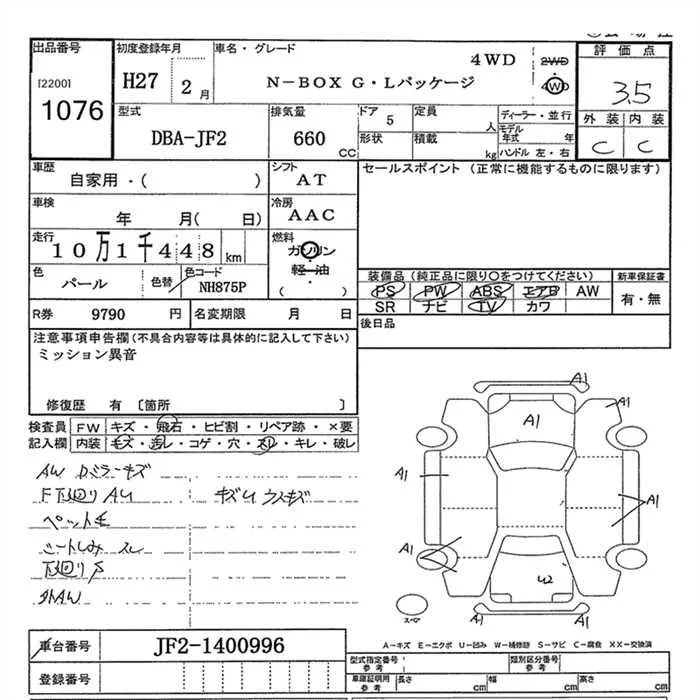 出品番号 初度登録年月 車名・グレード 評価点
[2200] H27 2月 4WD 2WD 4WD
1076 N-BOX G・Lパッケージ 3.5
型式 排気量 ドア 5 定員 人 ディーラー・並行 外装 内装
DBA-JF2 660 CC 形状 積載 kg モデル年式 年 C C
ハンドル 左・右
車歴 シフト セールスポイント (正常に機能するものに限ります)
自家用・( ) AT
車検 冷房
年 月( 日) AAC
走行 燃料
10万1千448 km ガソリン・軽油
( )
色 色替 色コード 装備品 (純正品に限り○をつけてください) 新車保証書
パール NH875P PS PW ABS エアB AW 有・無
SR ナビ TV カワ
R券 9790 円 名変期限 月 日 後日品
注意事項申告欄(不具合内容等は具体的に記入して下さい)
ミッション異音
修復歴 有 〔箇所 〕
検査員 FW キズ・飛石・ヒビ割・リペア跡・×要
記入欄 内装 キズ・汚レ・コゲ・穴・スレ・キレ・破レ
AW Dミラーキズ
F下廻りAU キズU ウスキズ
ペット毛
シートしみ スレ
下廻りS
外AW
A1
A1 A1
A1 A1
A1
U2
A1 A1
スペアー
A-キズ E-エクボ U-凹み W-補修跡 S-サビ C-腐食 XX-交換済
車台番号 JF2-1400996
型式指定番号 参考 類別区分番号 参考
登録番号 車庫証明用 参考 長さ cm 幅 cm 高さ cm